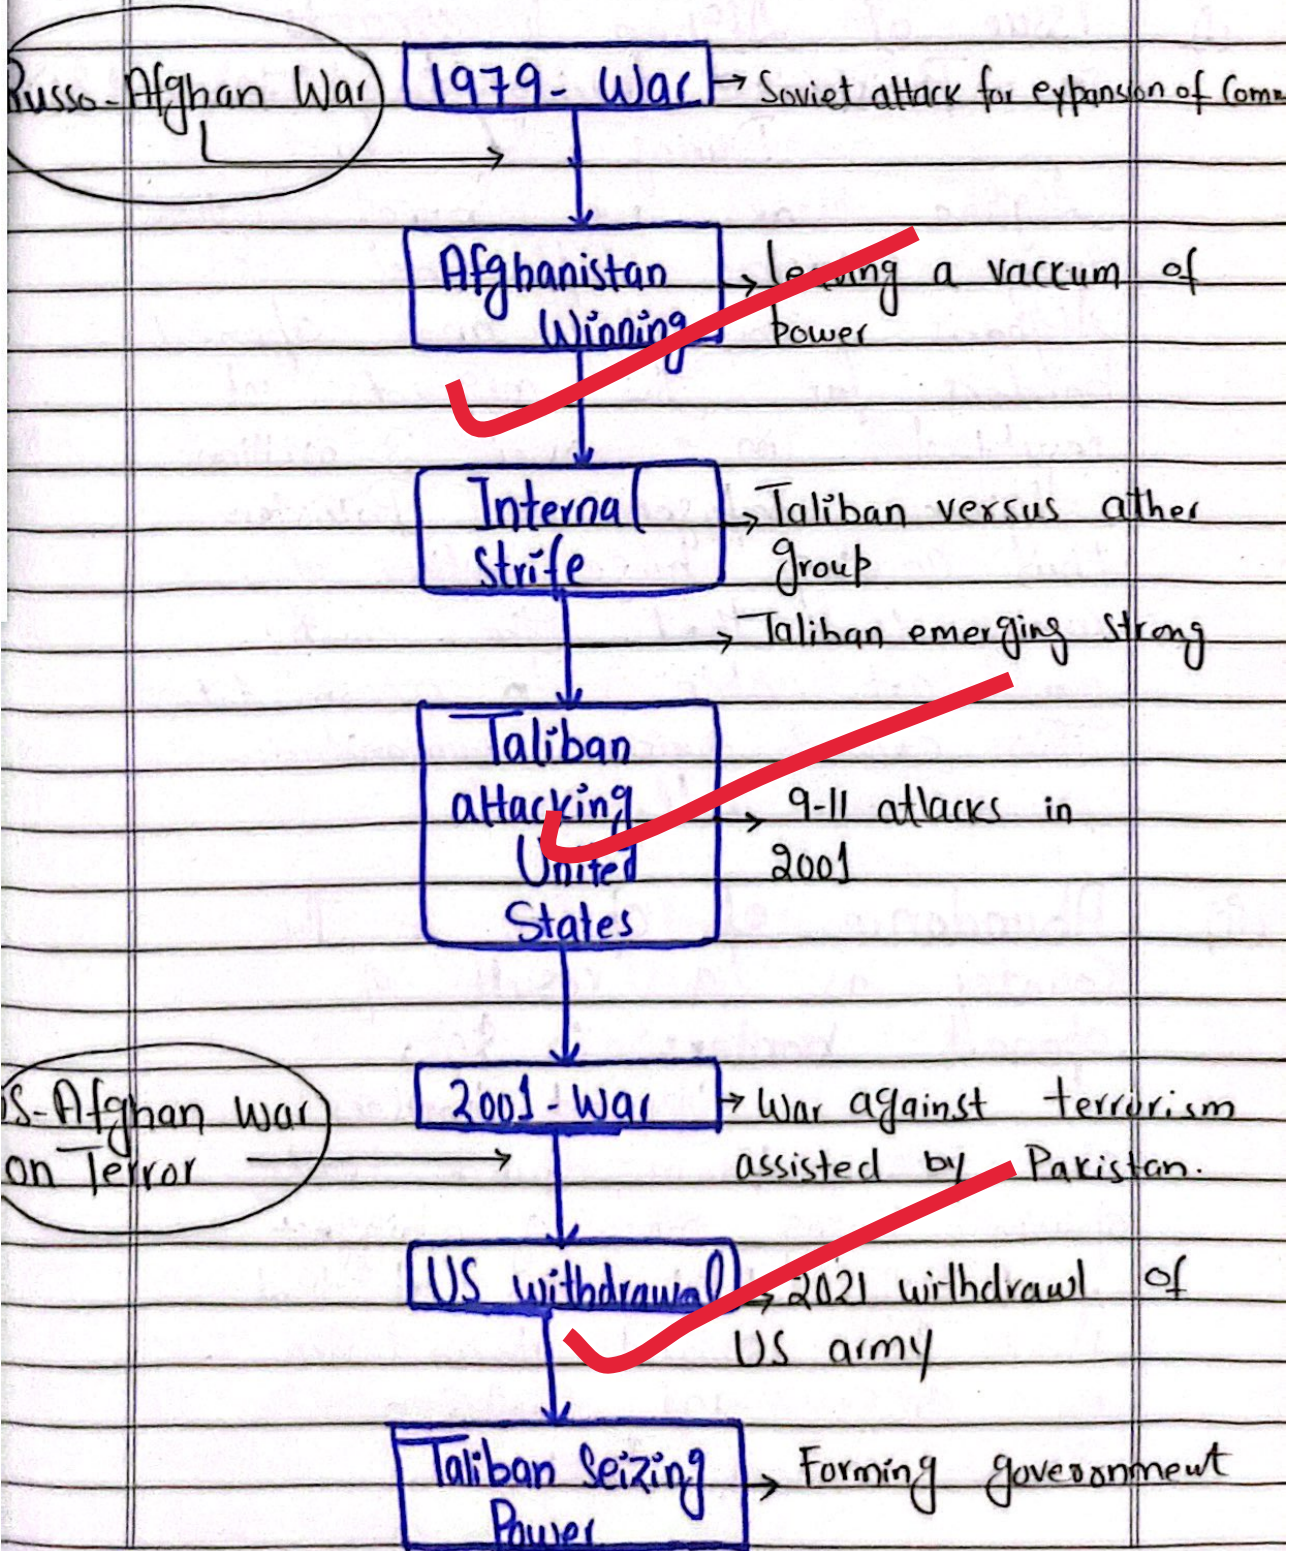 Russo-Afghan War
1979- War → Soviet attack for expansion of Comm
Afghanistan
Winning
→ leaving a vaccum of
power
Internal
Strife
→ Taliban versus other
group
→ Taliban emerging strong
Taliban
attacking
United
States
→ 9-11 attacks in
2001
S-Afghan War
on Terror
2001-War → War against terrorism
assisted by Pakistan.
US withdrawal → 2021 wirthdrawl of
US army
Taliban Seizing
Power
→ Forming goveronment